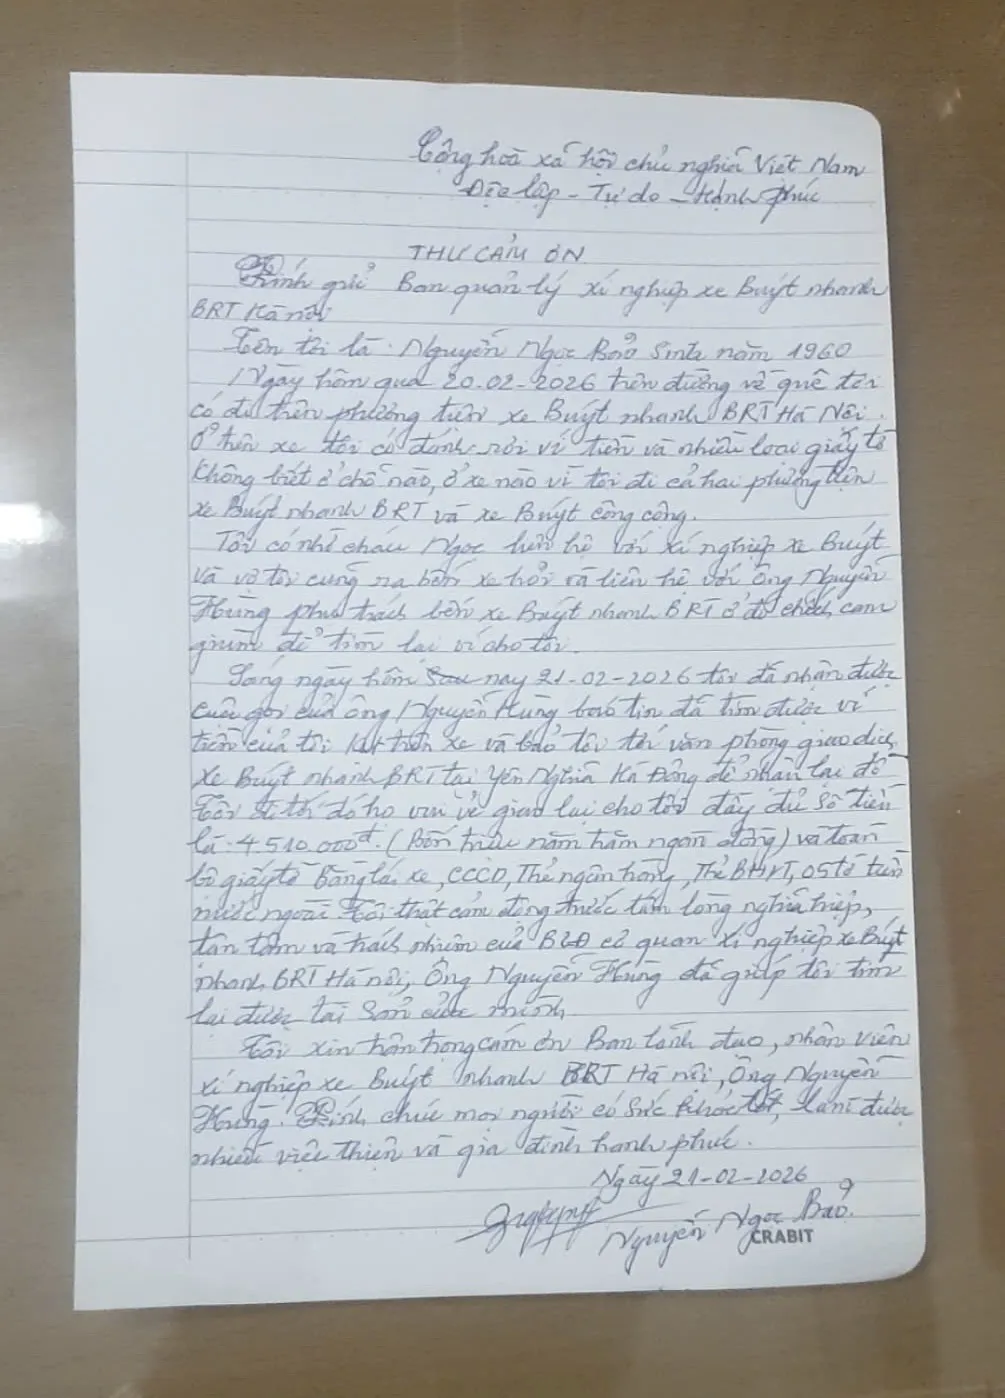 Cộng hoà xã hội chủ nghĩa Việt Nam
Độc lập - Tự do - Hạnh phúc
THƯ CẢM ƠN
Kính gửi Ban quản lý xí nghiệp xe Buýt nhanh
BRT Hà nội
Tên tôi là: Nguyễn Ngọc Bảo Sinh năm 1960
Ngày hôm qua 20-02-2026 trên đường về quê tôi
có đi trên phương tiện xe Buýt nhanh BRT Hà Nội.
Ở trên xe tôi có đánh rơi ví tiền và nhiều loại giấy tờ
không biết ở chỗ nào, ở xe nào vì tôi đi cả hai phương tiện
xe Buýt nhanh BRT và xe Buýt công cộng.
Tôi có nhờ cháu Ngọc liên hệ với xí nghiệp xe Buýt
và vợ tôi cũng ra bến xe hỏi và liên hệ với Ông Nguyễn
Hùng phụ trách bến xe Buýt nhanh BRT ở đó check cam
giúp để tìm lại ví cho tôi.
Sáng ngày hôm sau nay 21-02-2026 tôi đã nhận được
cuộc gọi của ông Nguyễn Hùng báo tin đã tìm được ví
tiền của tôi trên xe và bảo tôi tới văn phòng giao dịch
xe Buýt nhanh BRT tại Yên Nghĩa Hà Đông để nhận lại đồ
Tôi đi tới đó họ vui vẻ giao lại cho tôi đầy đủ số tiền
là: 4.510.000đ. (Bốn triệu năm trăm ngàn đồng) và toàn
bộ giấy tờ Bằng lái xe, CCCD, Thẻ ngân hàng, Thẻ BHYT, 05 tờ tiền
nước ngoài Tôi thật cảm động trước tấm lòng nghĩa hiệp,
tận tâm và trách nhiệm của BLĐ cơ quan xí nghiệp xe Buýt
nhanh BRT Hà nội, Ông Nguyễn Hùng đã giúp tôi tìm
lại được tài sản của mình
Tôi xin trân trọng cám ơn Ban lãnh đạo, nhân viên
xí nghiệp xe Buýt nhanh BRT Hà nội, Ông Nguyễn
Hùng. Kính chúc mọi người có sức khỏe tốt, làm được
nhiều việc thiện và gia đình hạnh phúc.
Ngày 21-02-2026
Nguyễn Ngọc Bảo.
CRABIT